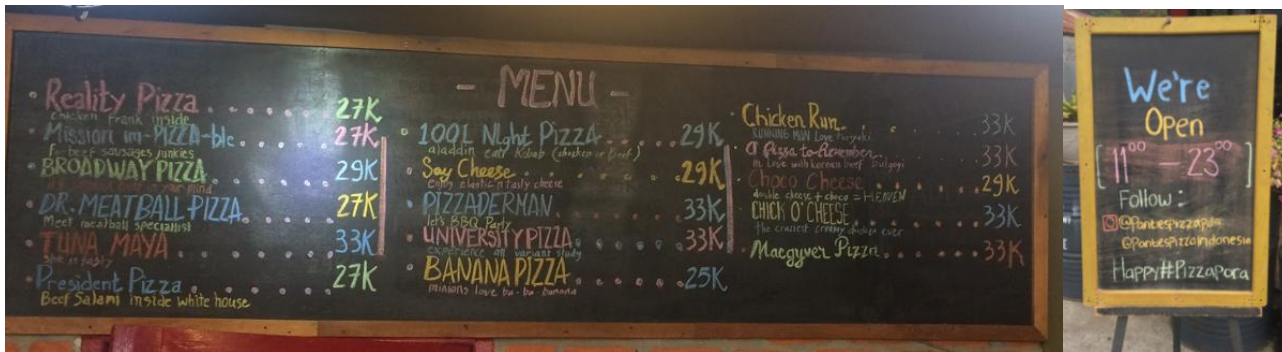 - MENU -
Reality Pizza 27K
chicken Frank inside
Mission im-PIZZA-ble 27K
for beef sausages junkies
BROADWAY PIZZA 29K
in your mind
DR. MEATBALL PIZZA 27K
Meet meatball specialist
TUNA MAYA 33K
she is tasty
President Pizza 27K
Beef Salami inside white house
1001 NIght PIZZA 29K
aladdin eat Kebab (chicken or beef)
Say Cheese 29K
enjoy elastic n tasty cheese
PIZZADERMAN 33K
let's BBQ Party
UNIVERSITY PIZZA 33K
experience all variant study
BANANA PIZZA 25K
minions love ba-ba-banana
Chicken Run 33K
RUNNING MAN Love
A Pizza to Remember 33K
in Love with korean beef Bulgogi
Choco Cheese 29K
double cheese + choco = HEAVEN
CHICK O' CHEESE 33K
the craziest creamy chicken ever
Macgyver Pizza 33K
We're
Open
[11⁰⁰ — 23⁰⁰]
Follow :
@Pontespizzaindonesia
Happy#PizzaPora